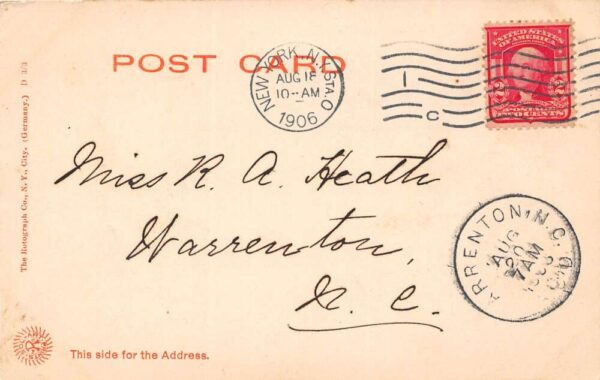 POST CARD
NEW YORK, N.Y. STA. O
AUG 18
10-AM
1906
1
C
UNITED STATES
OF AMERICA
POSTAGE
TWO CENTS
Miss R. A. Heath
Warrenton,
N. C.
ARRENTON, N.C.
AUG
7AM
REC'D
The Rotograph Co., N. Y. City. (Germany.) D 3/3
This side for the Address.